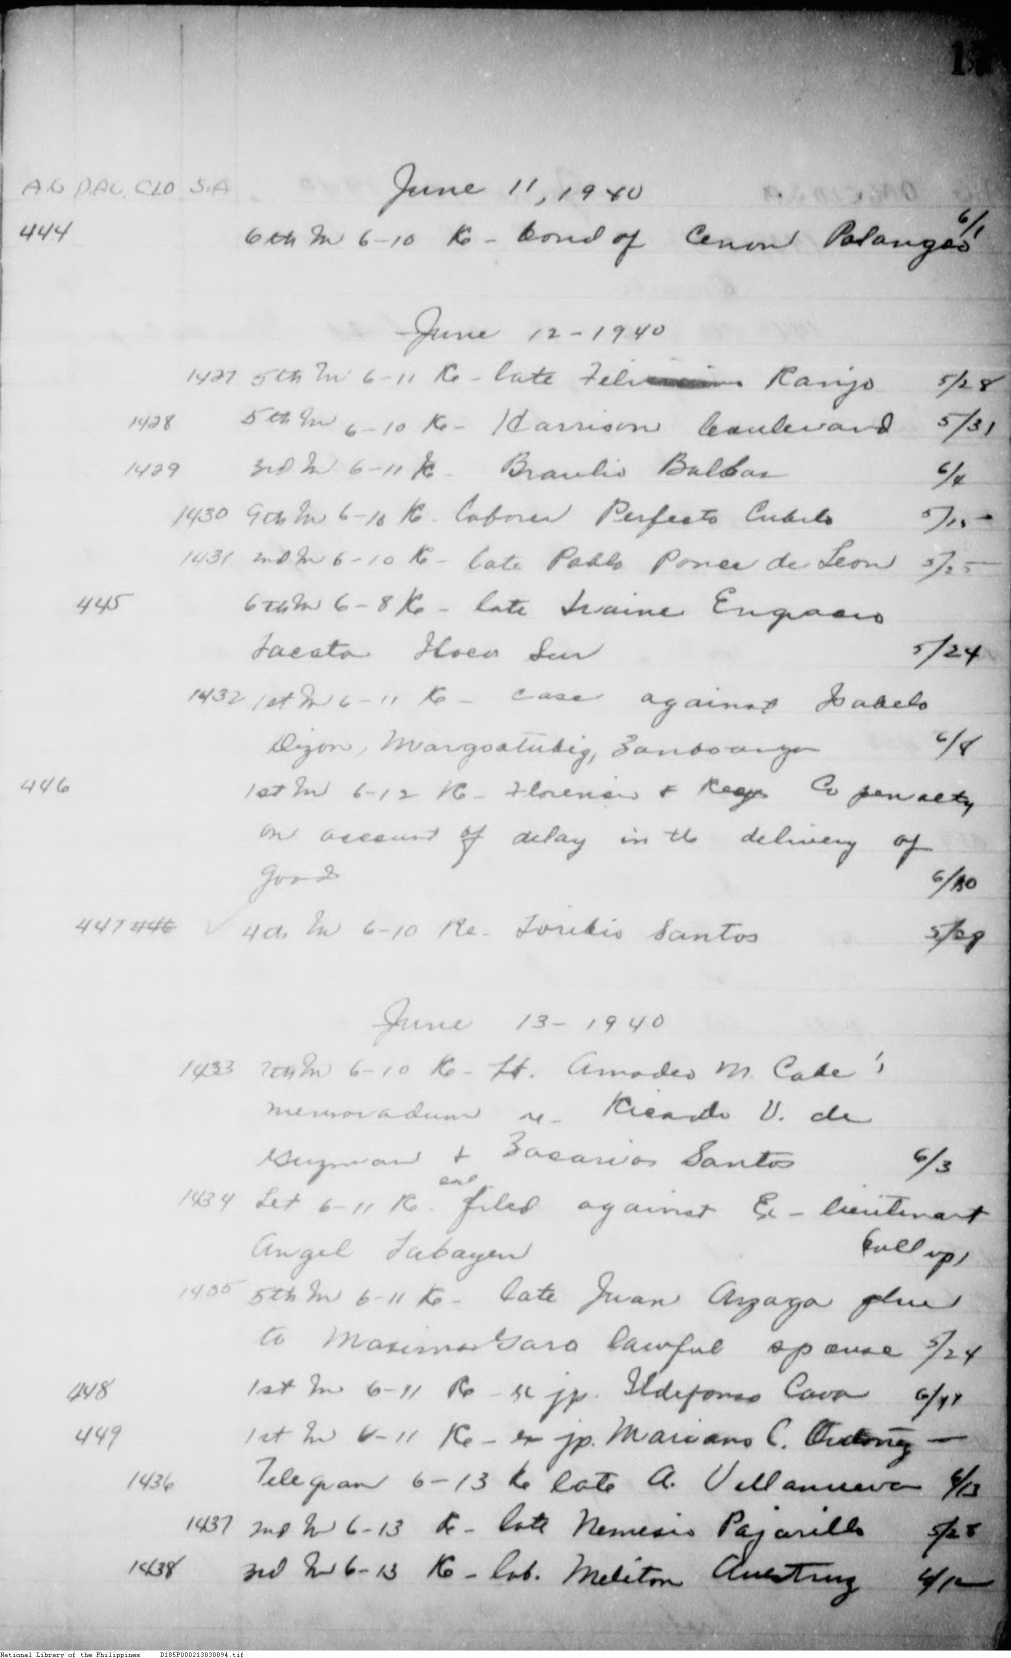 AG DAC CLO S.A June 11, 1940
444 6th In 6-10 Re - bond of Cenon Palangeo 6/1
June 12 - 1940
1427 5th In 6-11 Re - late Ranijo 5/28
1428 5th In 6-10 Re - Harrison boulevard 5/31
1429 3rd In 6-11 Re. Braulio Balbas 6/4
1430 9th In 6-10 Re. laborer Perfecto Cubelo 5/15 -
1431 2nd In 6-10 Re - late Pablo Ponce de Leon 5/25 -
445 6th In 6-8 Re - late
Ilocos Sur 5/24
1432 1st In 6-11 Re - case against Isabelo
Dizon, Margosatubig, Zamboanga 6/8
446 1st In 6-12 Re - & Co penalty
on account of delay in the delivery of
goods 6/10
447 446 4th In 6-10 Re - Toribio Santos 5/29
June 13 - 1940
1433 7th In 6-10 Re - Lt. Amadeo M. Cade'
memoradum re. Ricardo V. de
Guzman & Zacarias Santos 6/3
1434 Let 6-11 Re. case filed against Ex - lieutenant
Angel Tabayen
1435 5th In 6-11 Re - late Juan Arzaga due
to Maxima Garo lawful spouse 5/24
448 1st In 6-11 Re - ex jp. Ildefonso Cava 6/11
449 1st In 6-11 Re - ex jp. Mariano C. Ordoñez -
1436 Telegram 6-13 Re late A. Villanueva 6/13
1437 2nd In 6-13 Re - late Nemesio Pajarillo 5/28
1438 3rd In 6-13 Re - lab. Meliton 6/12
National Library of the Philippines D185P000213030094.tif